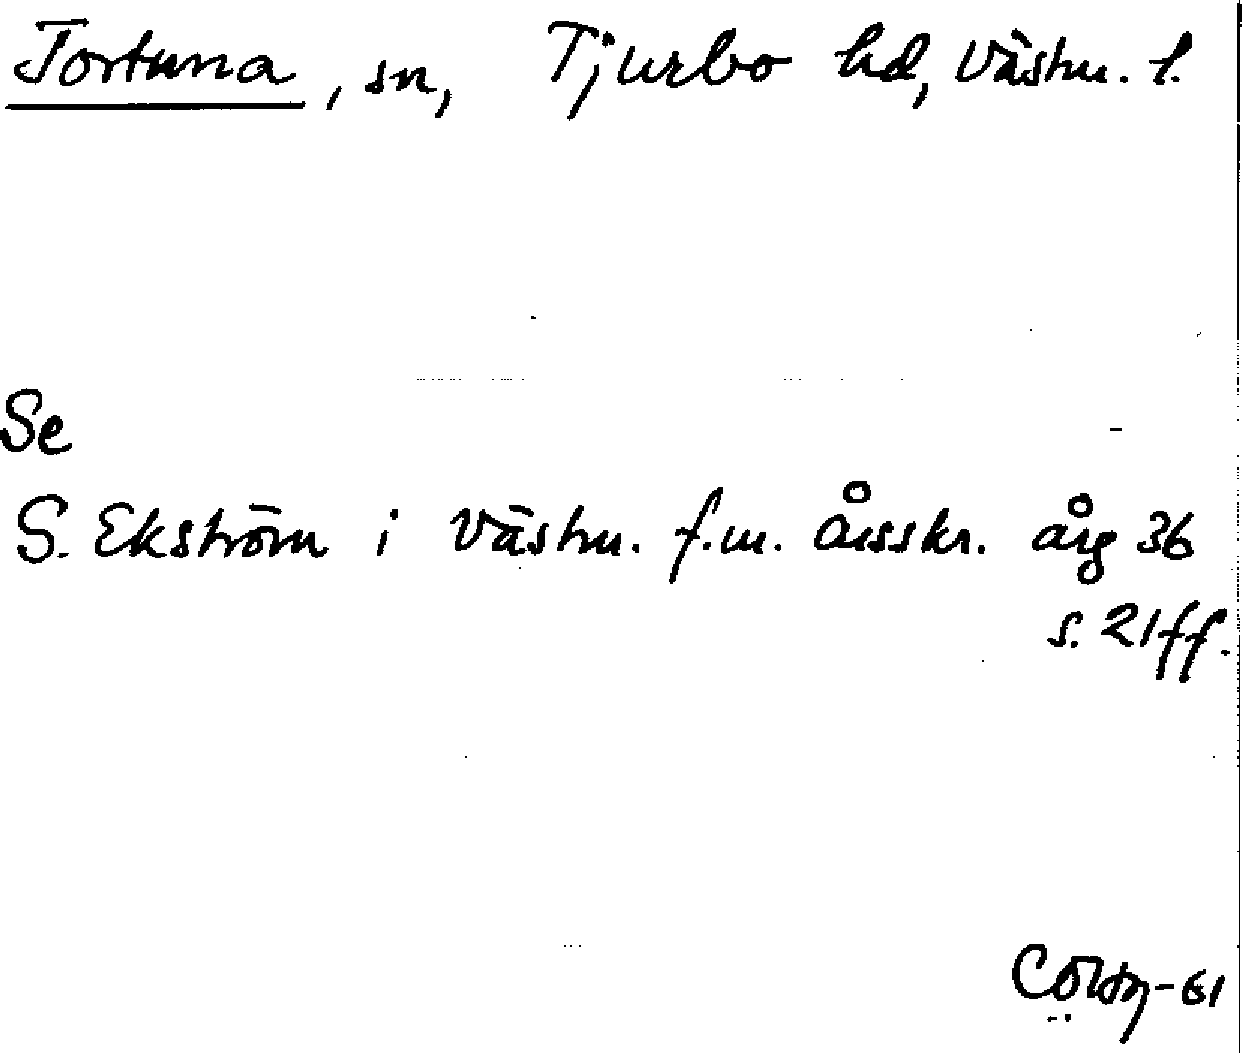 Tortuna, sn, Tjurbo hd, Västm. l.
Se
S. Ekström i Västm. f.m. årsskr. årg 36
s. 21ff.